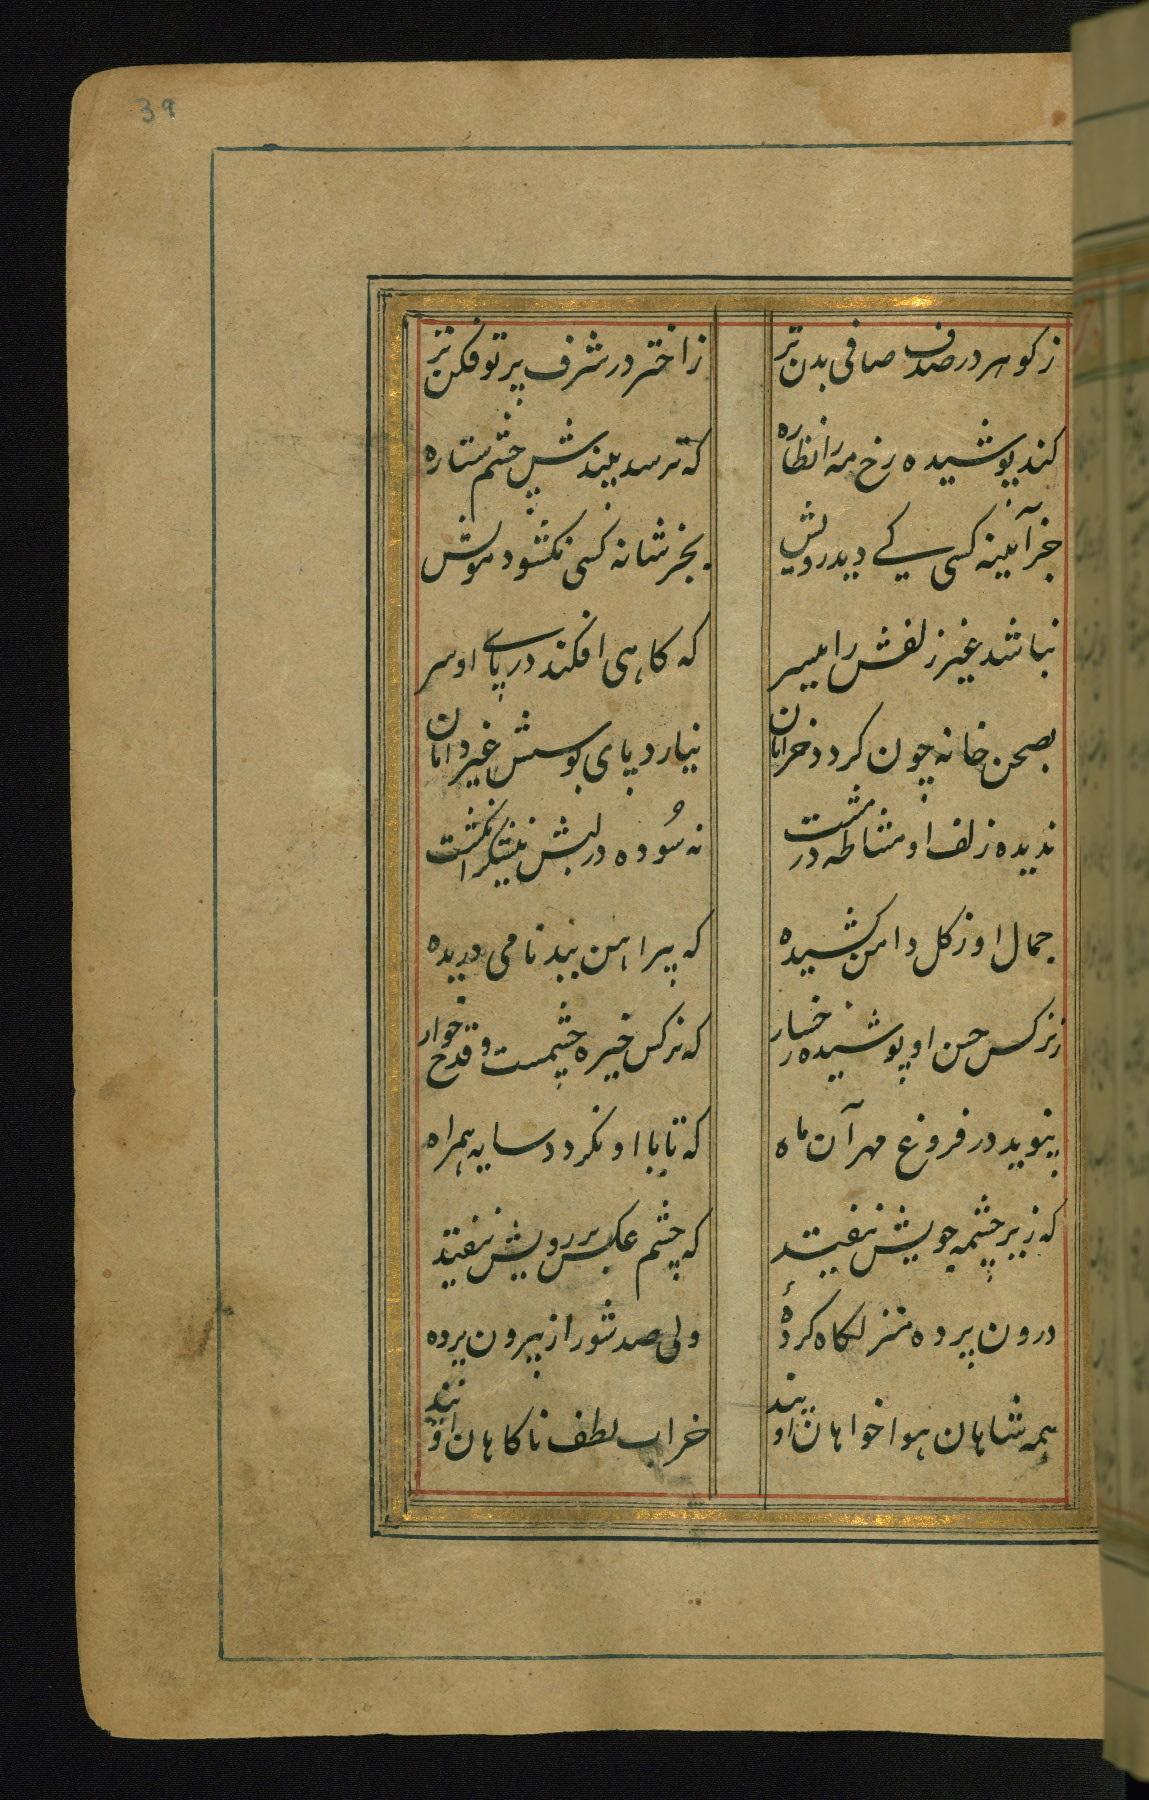 39
ز کوهر در صدف صافی بدن تر ز اختر در شرف پرتو فکن تر
کند پوشیده رخ مه را نظاره که ترسد بیندش چشم ستاره
جز آئینه کسی کے دیده رویش بجز شانه کسی نکشود مویش
نباشد غیر زلفش را میسر که کاهی افکند در پاے او سر
بصحن خانه چون کردد خرامان نیارد پای بوسش غیر دامان
ندیده زلف او مشاطه در مشت نه سُوده در لبش نیشکر انکشت
جمال او ز کل دامن کشیده که پیراهن ببدنامی دریده
ز نرکس حسن او پوشیده رخسار که نرکس خیره چشمست و قدح خوار
نپوید در فروغ مهر آن ماه که تا با او نکردد سایه همراه
که زیر چشمه جویش نیفتد که چشم عکس بر رویش نیفتد
درون پرده منزلکاه کردهٔ ولی صد شور از بیرون پرده
همه شاهان هواخواهان اویند خراب لطف ناکاهان اویند